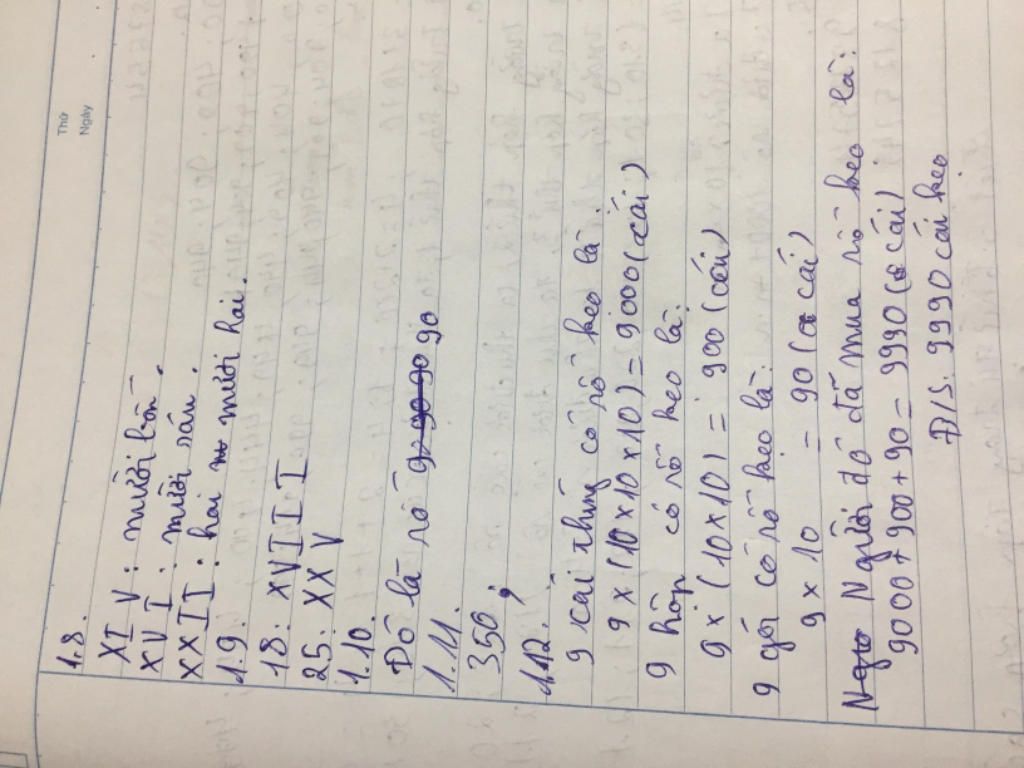 Thứ
Ngày
1.8.
XIV: mười bốn.
XVI: mười sáu.
XXII: hai mươi hai.
1.9.
18: XVIII
25: XXV
1.10.
Đó là số 90
1.11.
350,
1.12.
9 cái thùng có số kẹo là:
9 x (10 x 10 x 10) = 9000 (cái)
9 hộp có số kẹo là:
9 x (10 x 10) = 900 (cái)
9 gói có số kẹo là:
9 x 10 = 90 (cái)
Người đó đã mua số kẹo là:
9000 + 900 + 90 = 9990 (cái)
Đ/S: 9990 cái kẹo